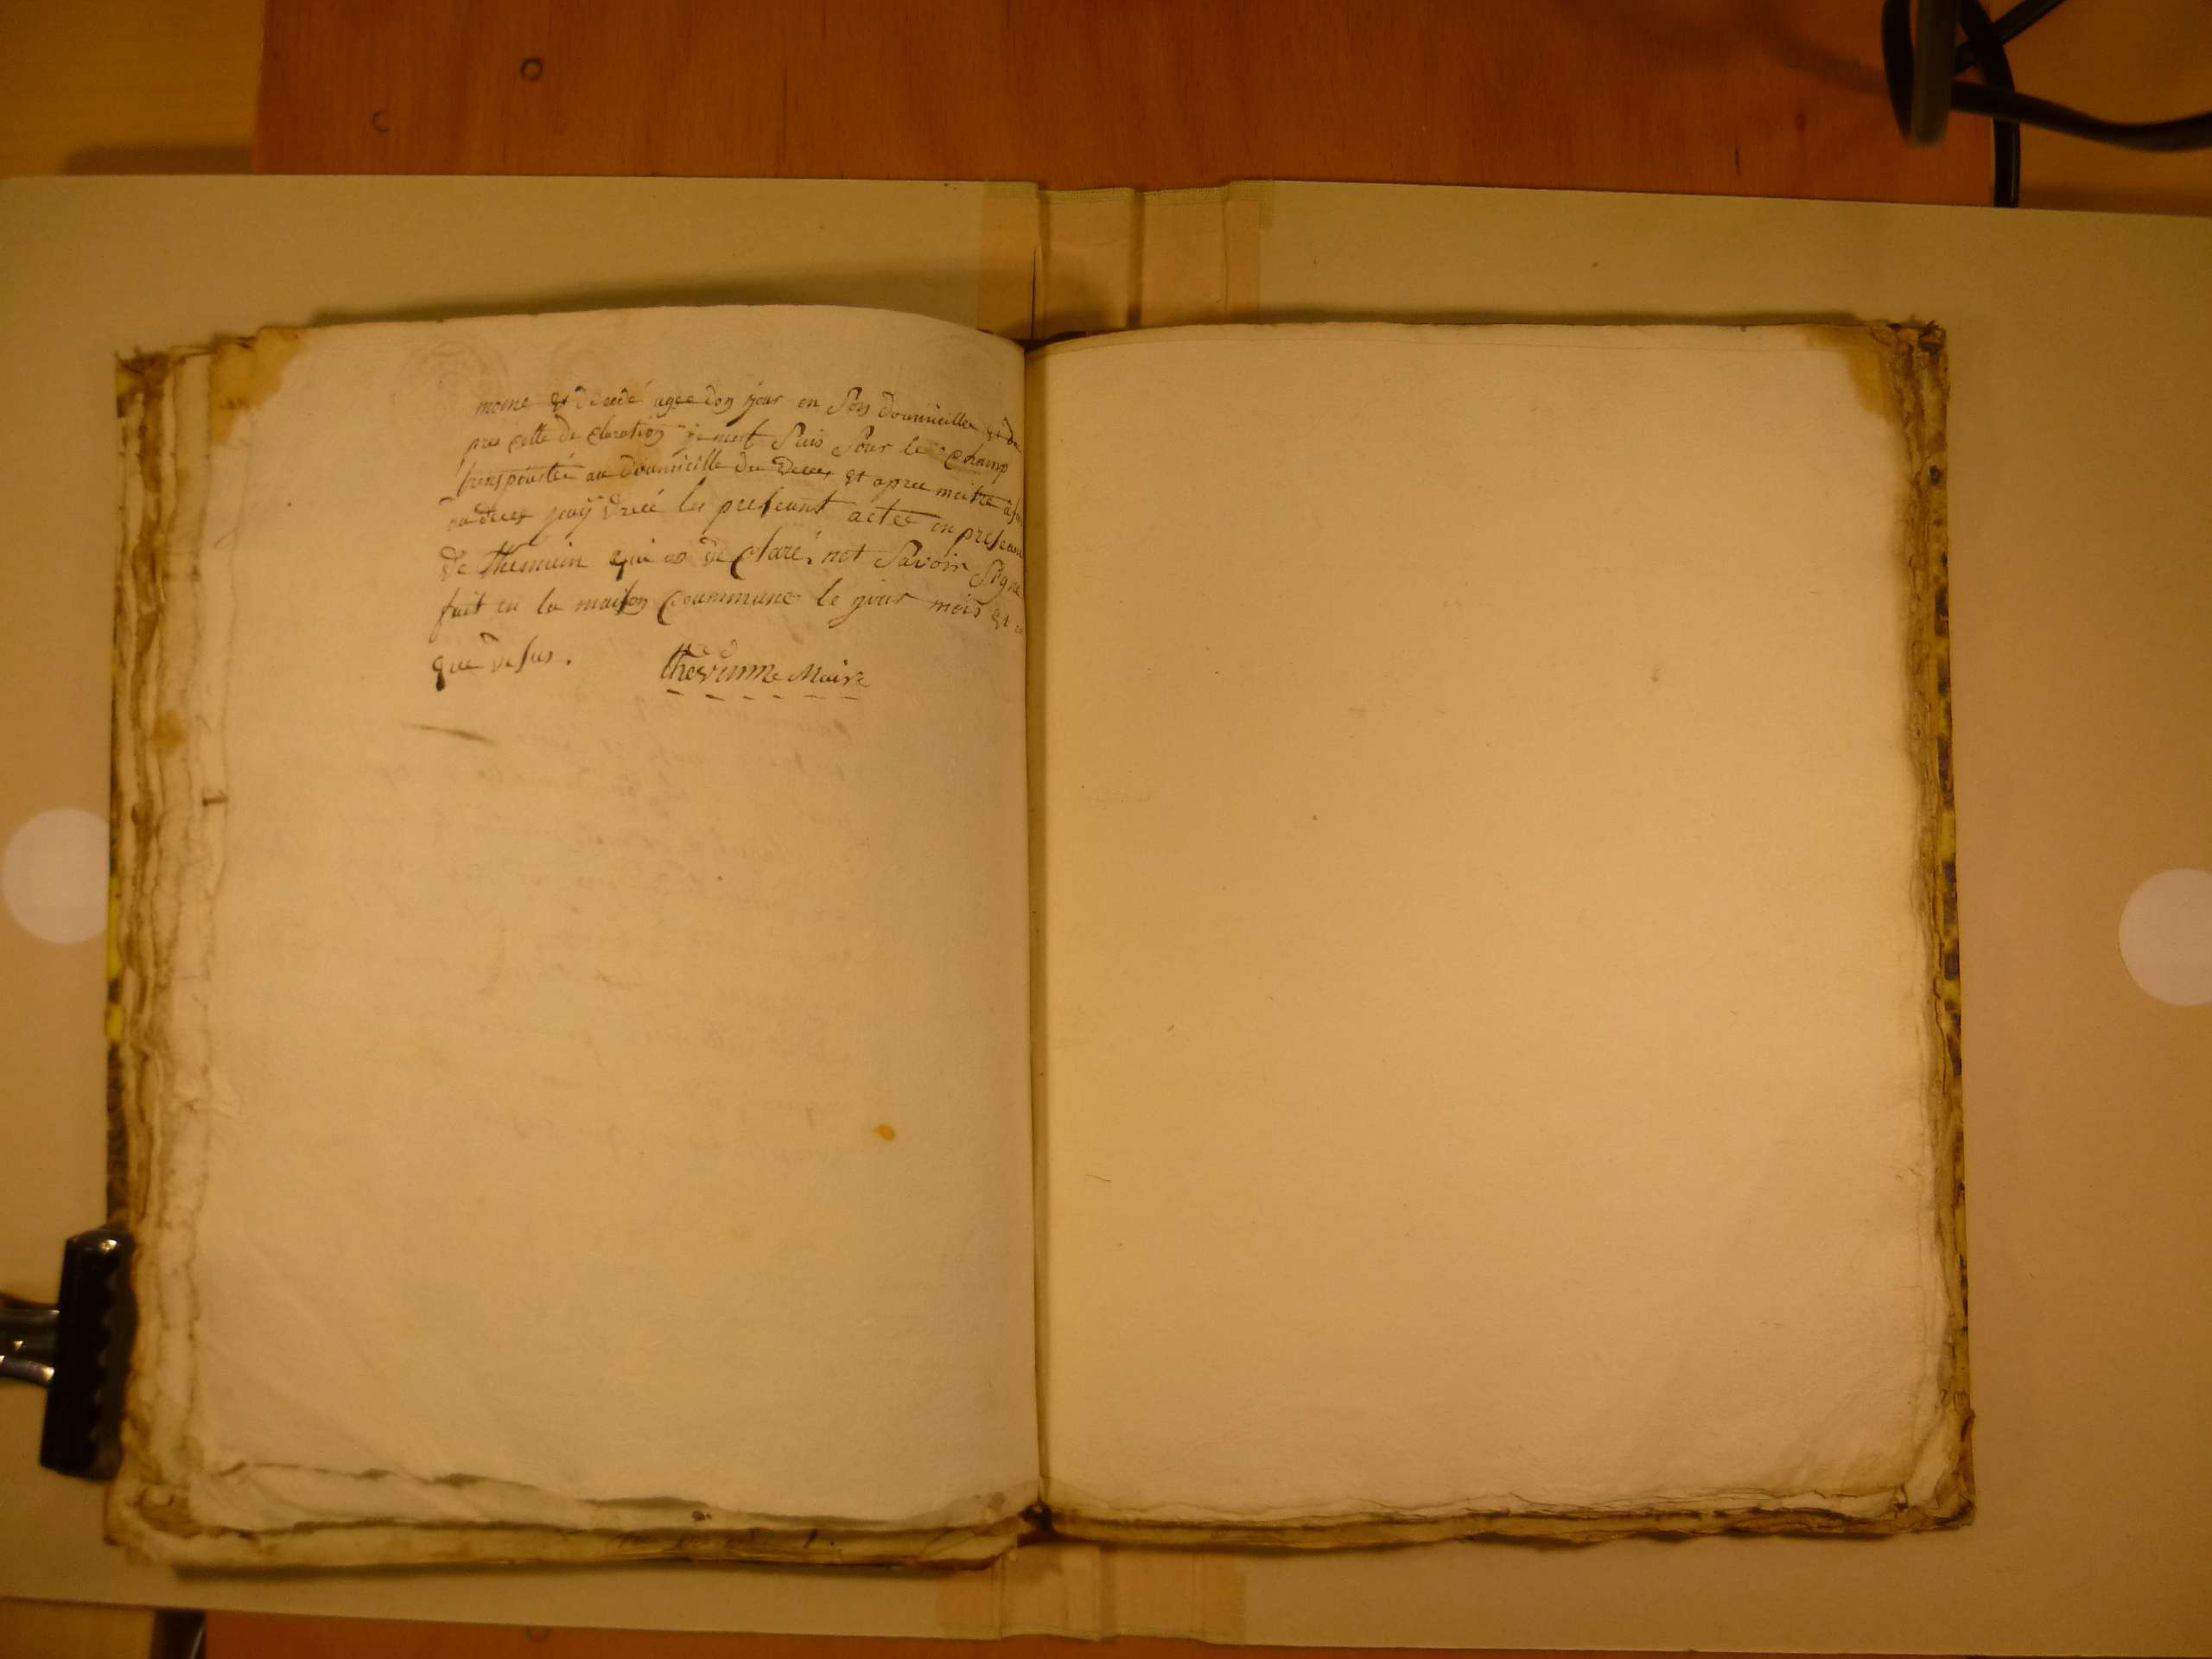 moine et decedé agee don jour en Son doumicille et da
pres cette de claration je mest Suis Sour le champ
transpourtée au doumicille du deces et apree meitre asu
du deces jeay drecé les preseant actes en preseans
de themuin qui on de claré. not Savoir Signe
fait en la maison coummune le jour mois et
que desus.
thevenne Maire